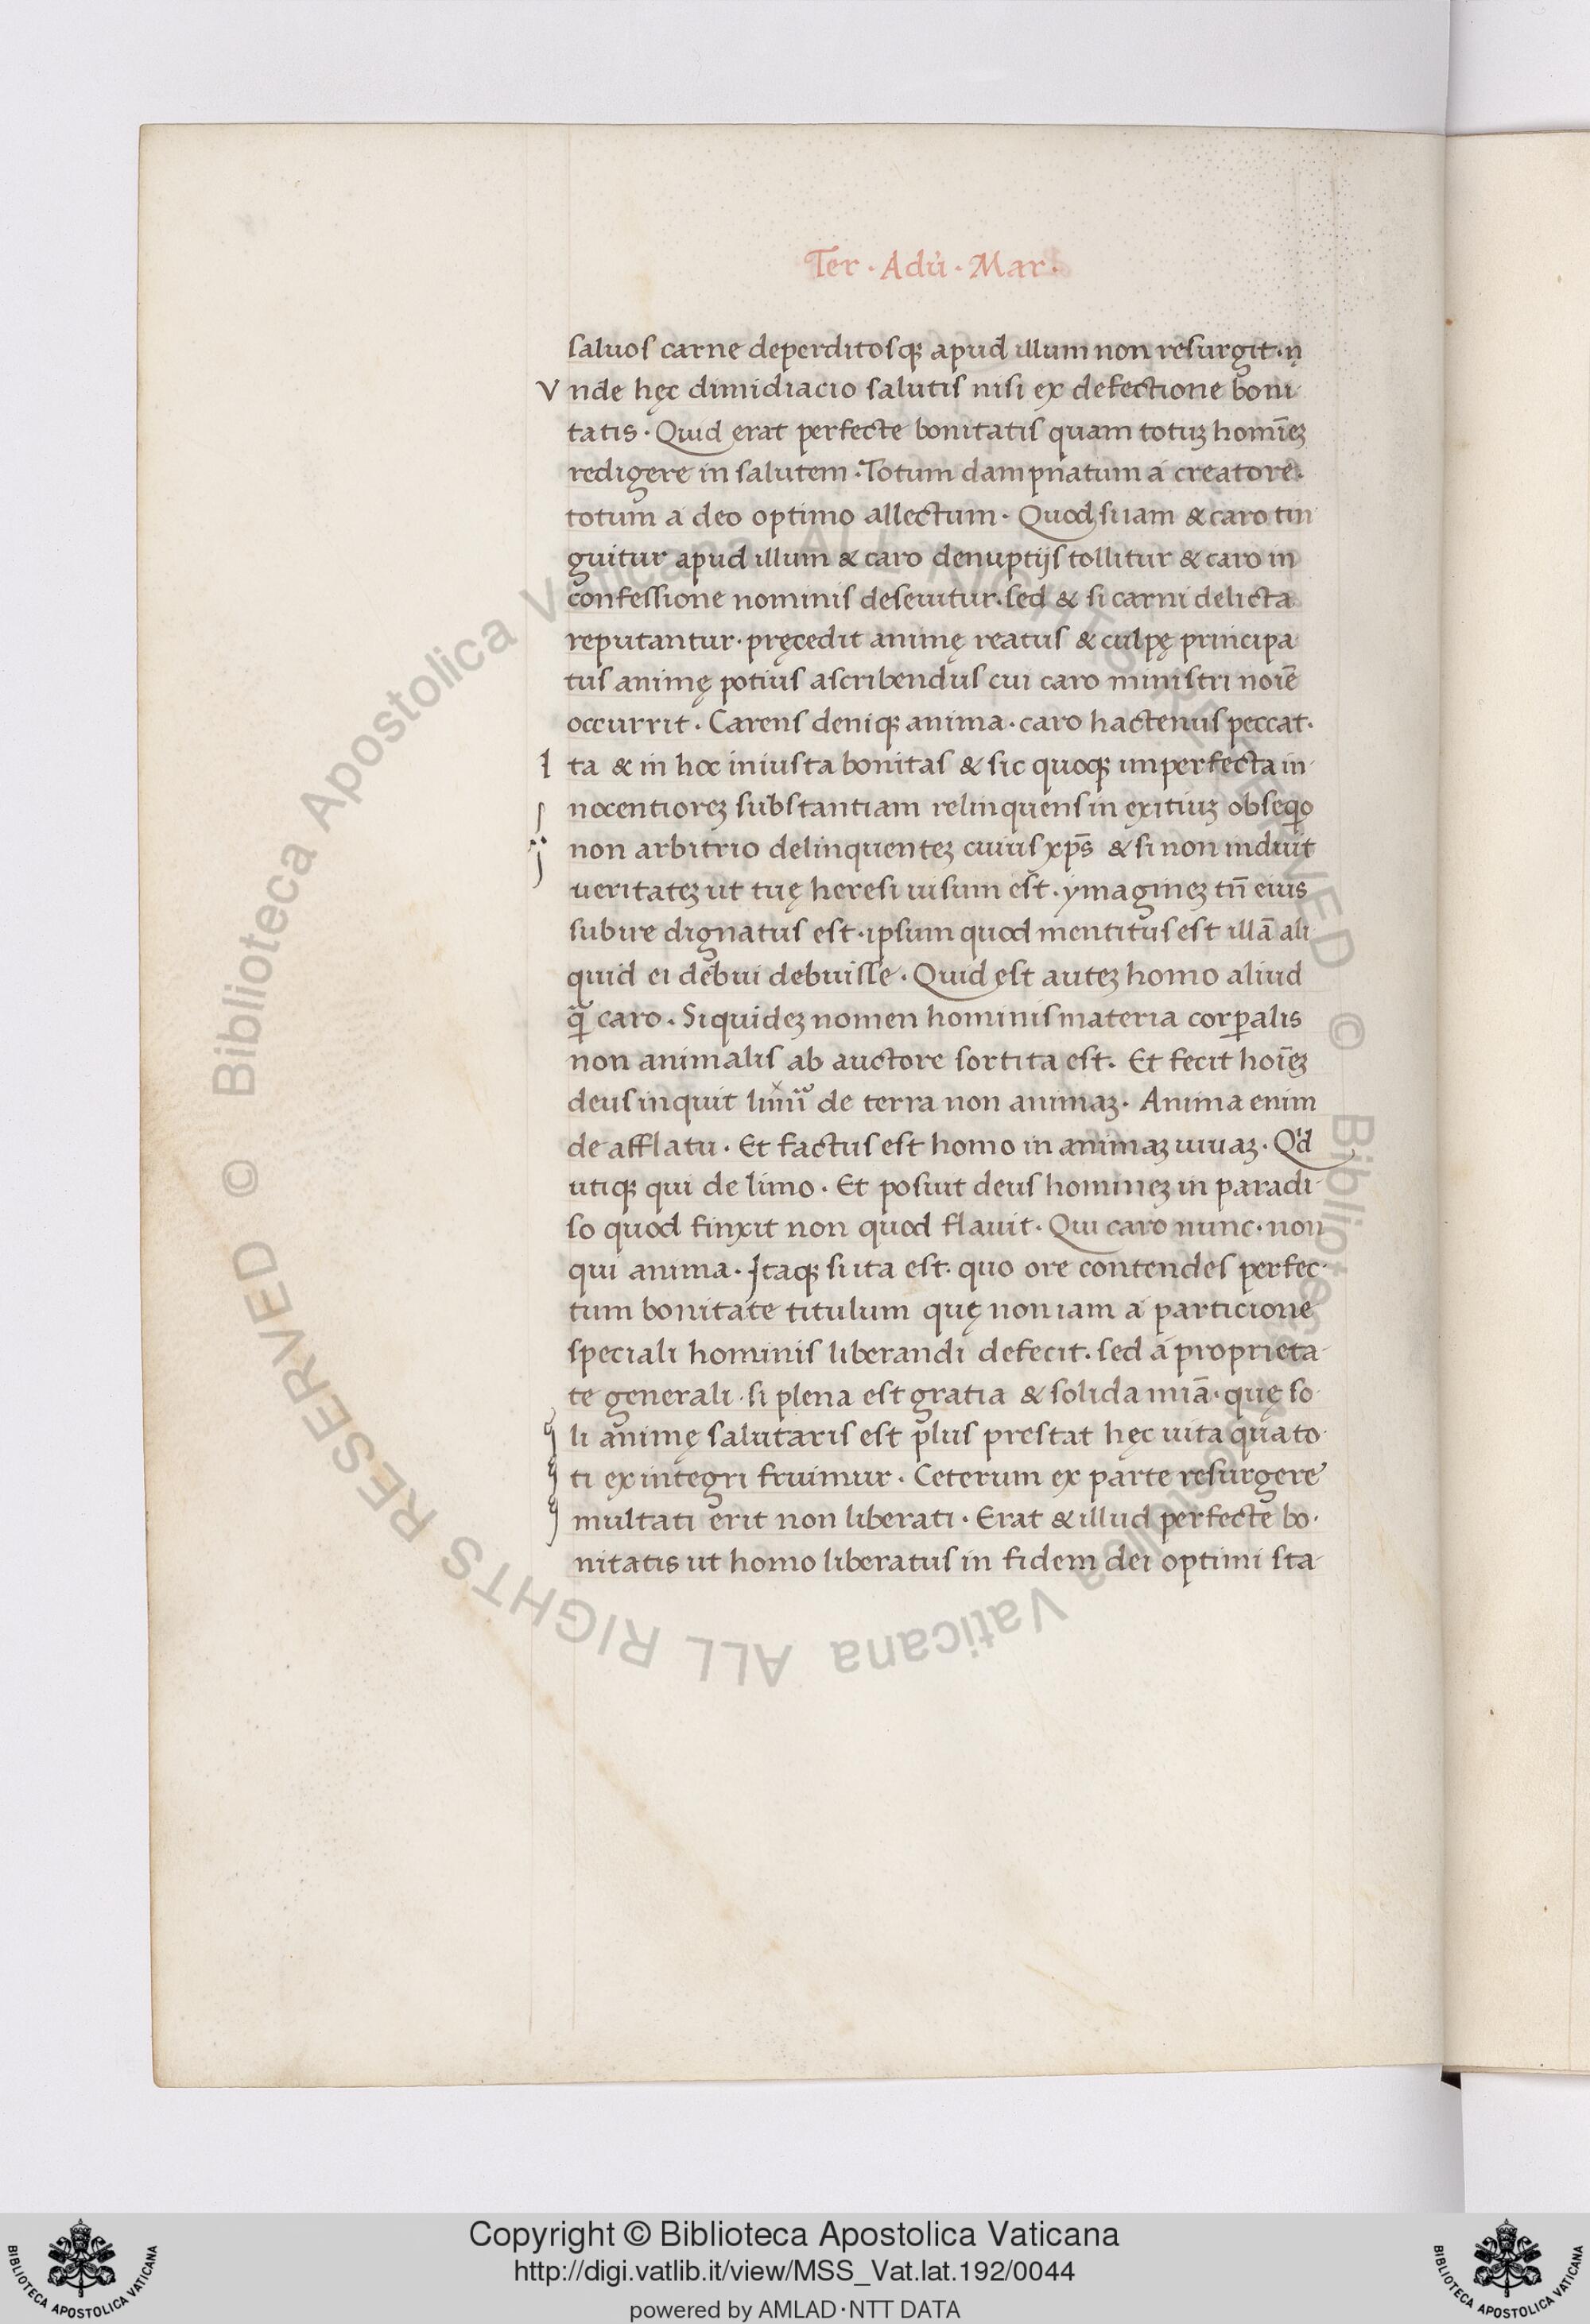 Ter · Adu̓ · Mar ·
saluos carne deperditosqꝫ apud illum non resurgit · n
Vnde hęc dimidiacio salutis nisi ex defectione boni
tatis · Quid erat perfecte bonitatis quam totuꝫ homīeꝫ
redigere in salutem · Totum dampnatum a creatore ·
totum a deo optimo allectum · Quod si iam & caro tin
guitur apud illum & caro denuptijs tollitur & caro in
confessione nominis deseuitur · sed & si carni delicta
reputantur · pręcedit animę reatus & culpę principa
tus animę potius ascribendus cui caro ministri noīe
occurrit · Carens deniqꝫ anima · caro hactenus peccat ·
Ita & in hoc iniusta bonitas & sic quoqꝫ imperfecta in
nocentioreꝫ substantiam relinquens in exitiuꝫ obseq̇o
non arbitrio delinquenteꝫ cuius xp̄s & si non induit
ueritateꝫ ut tuę heresi uisum est · ymagineꝫ tn̄ eius
subire dignatus est · ipsum quod mentitus est illā ali
quid ei debui debuisse · Quid est auteꝫ homo aliud
q̄ꝫ caro · Siquideꝫ nomen hominis materia corꝑalis
non animalis ab auctore sortita est · Et fecit hoīeꝫ
deus inquit limū de terra non animaꝫ · Anima enim
de afflatu · Et factus est homo in animaꝫ uiuaꝫ · Qͥd
utiqꝫ qui de limo · Et posuit deus homineꝫ in paradi
so quod finxit non quod flauit · Qui caro nunc · non
qui anima · Itaqꝫ si ita est · quo ore contendes perfec
tum bonitate titulum quę non iam a particione
speciali hominis liberandi defecit · sed a proprieta
te generali · si plena est gratia & solida mīa · quę so
li animę salutaris est plus prestat hęc uita qua to
ti ex integri fruimur · Ceterum ex parte resurgere
multati erit non liberati · Erat & illud perfecte bo
nitatis ut homo liberatus in fidem dei optimi sta
© Biblioteca Apostolica Vaticana ALL RIGHTS RESERVED © Biblioteca Apostolica Vaticana ALL RIGHTS RESERVED
Copyright © Biblioteca Apostolica Vaticana
http://digi.vatlib.it/view/MSS_Vat.lat.192/0044
powered by AMLAD·NTT DATA
BIBLIOTECA APOSTOLICA VATICANA
BIBLIOTECA APOSTOLICA VATICANA